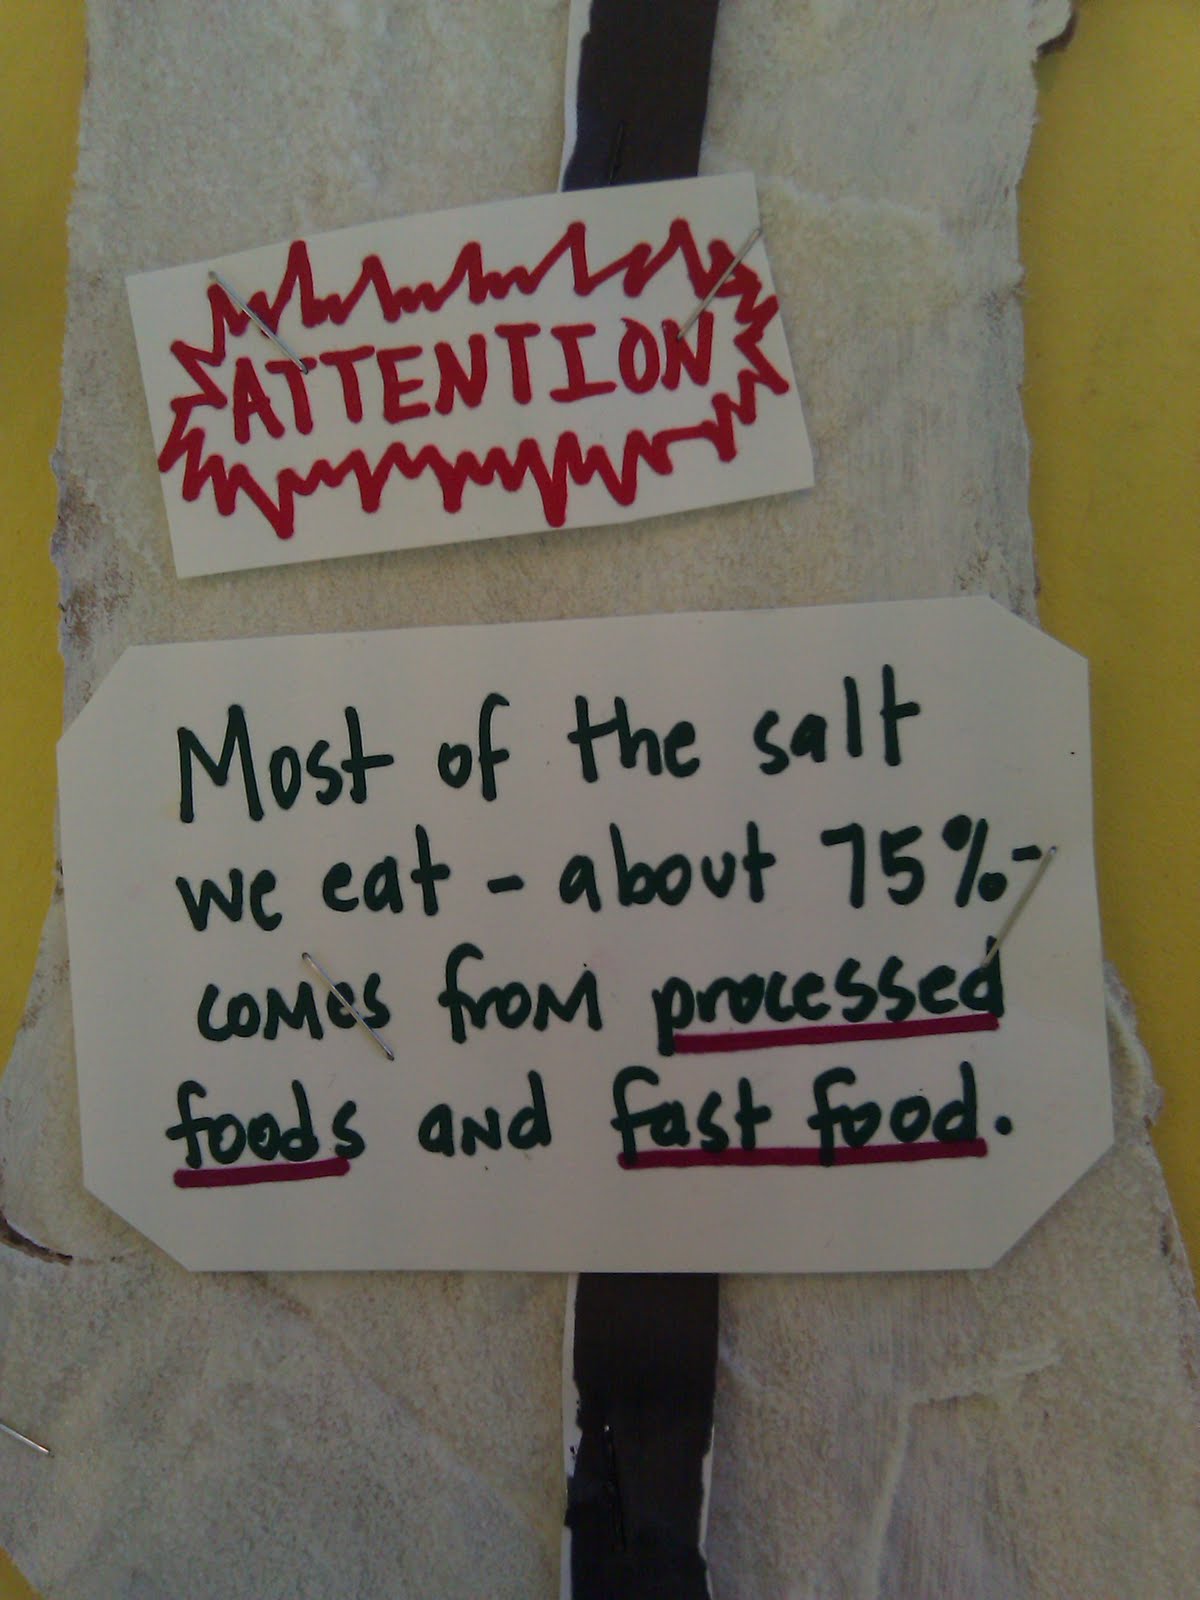 ATTENTION
Most of the salt
we eat - about 75% -
comes from processed
foods and fast food.